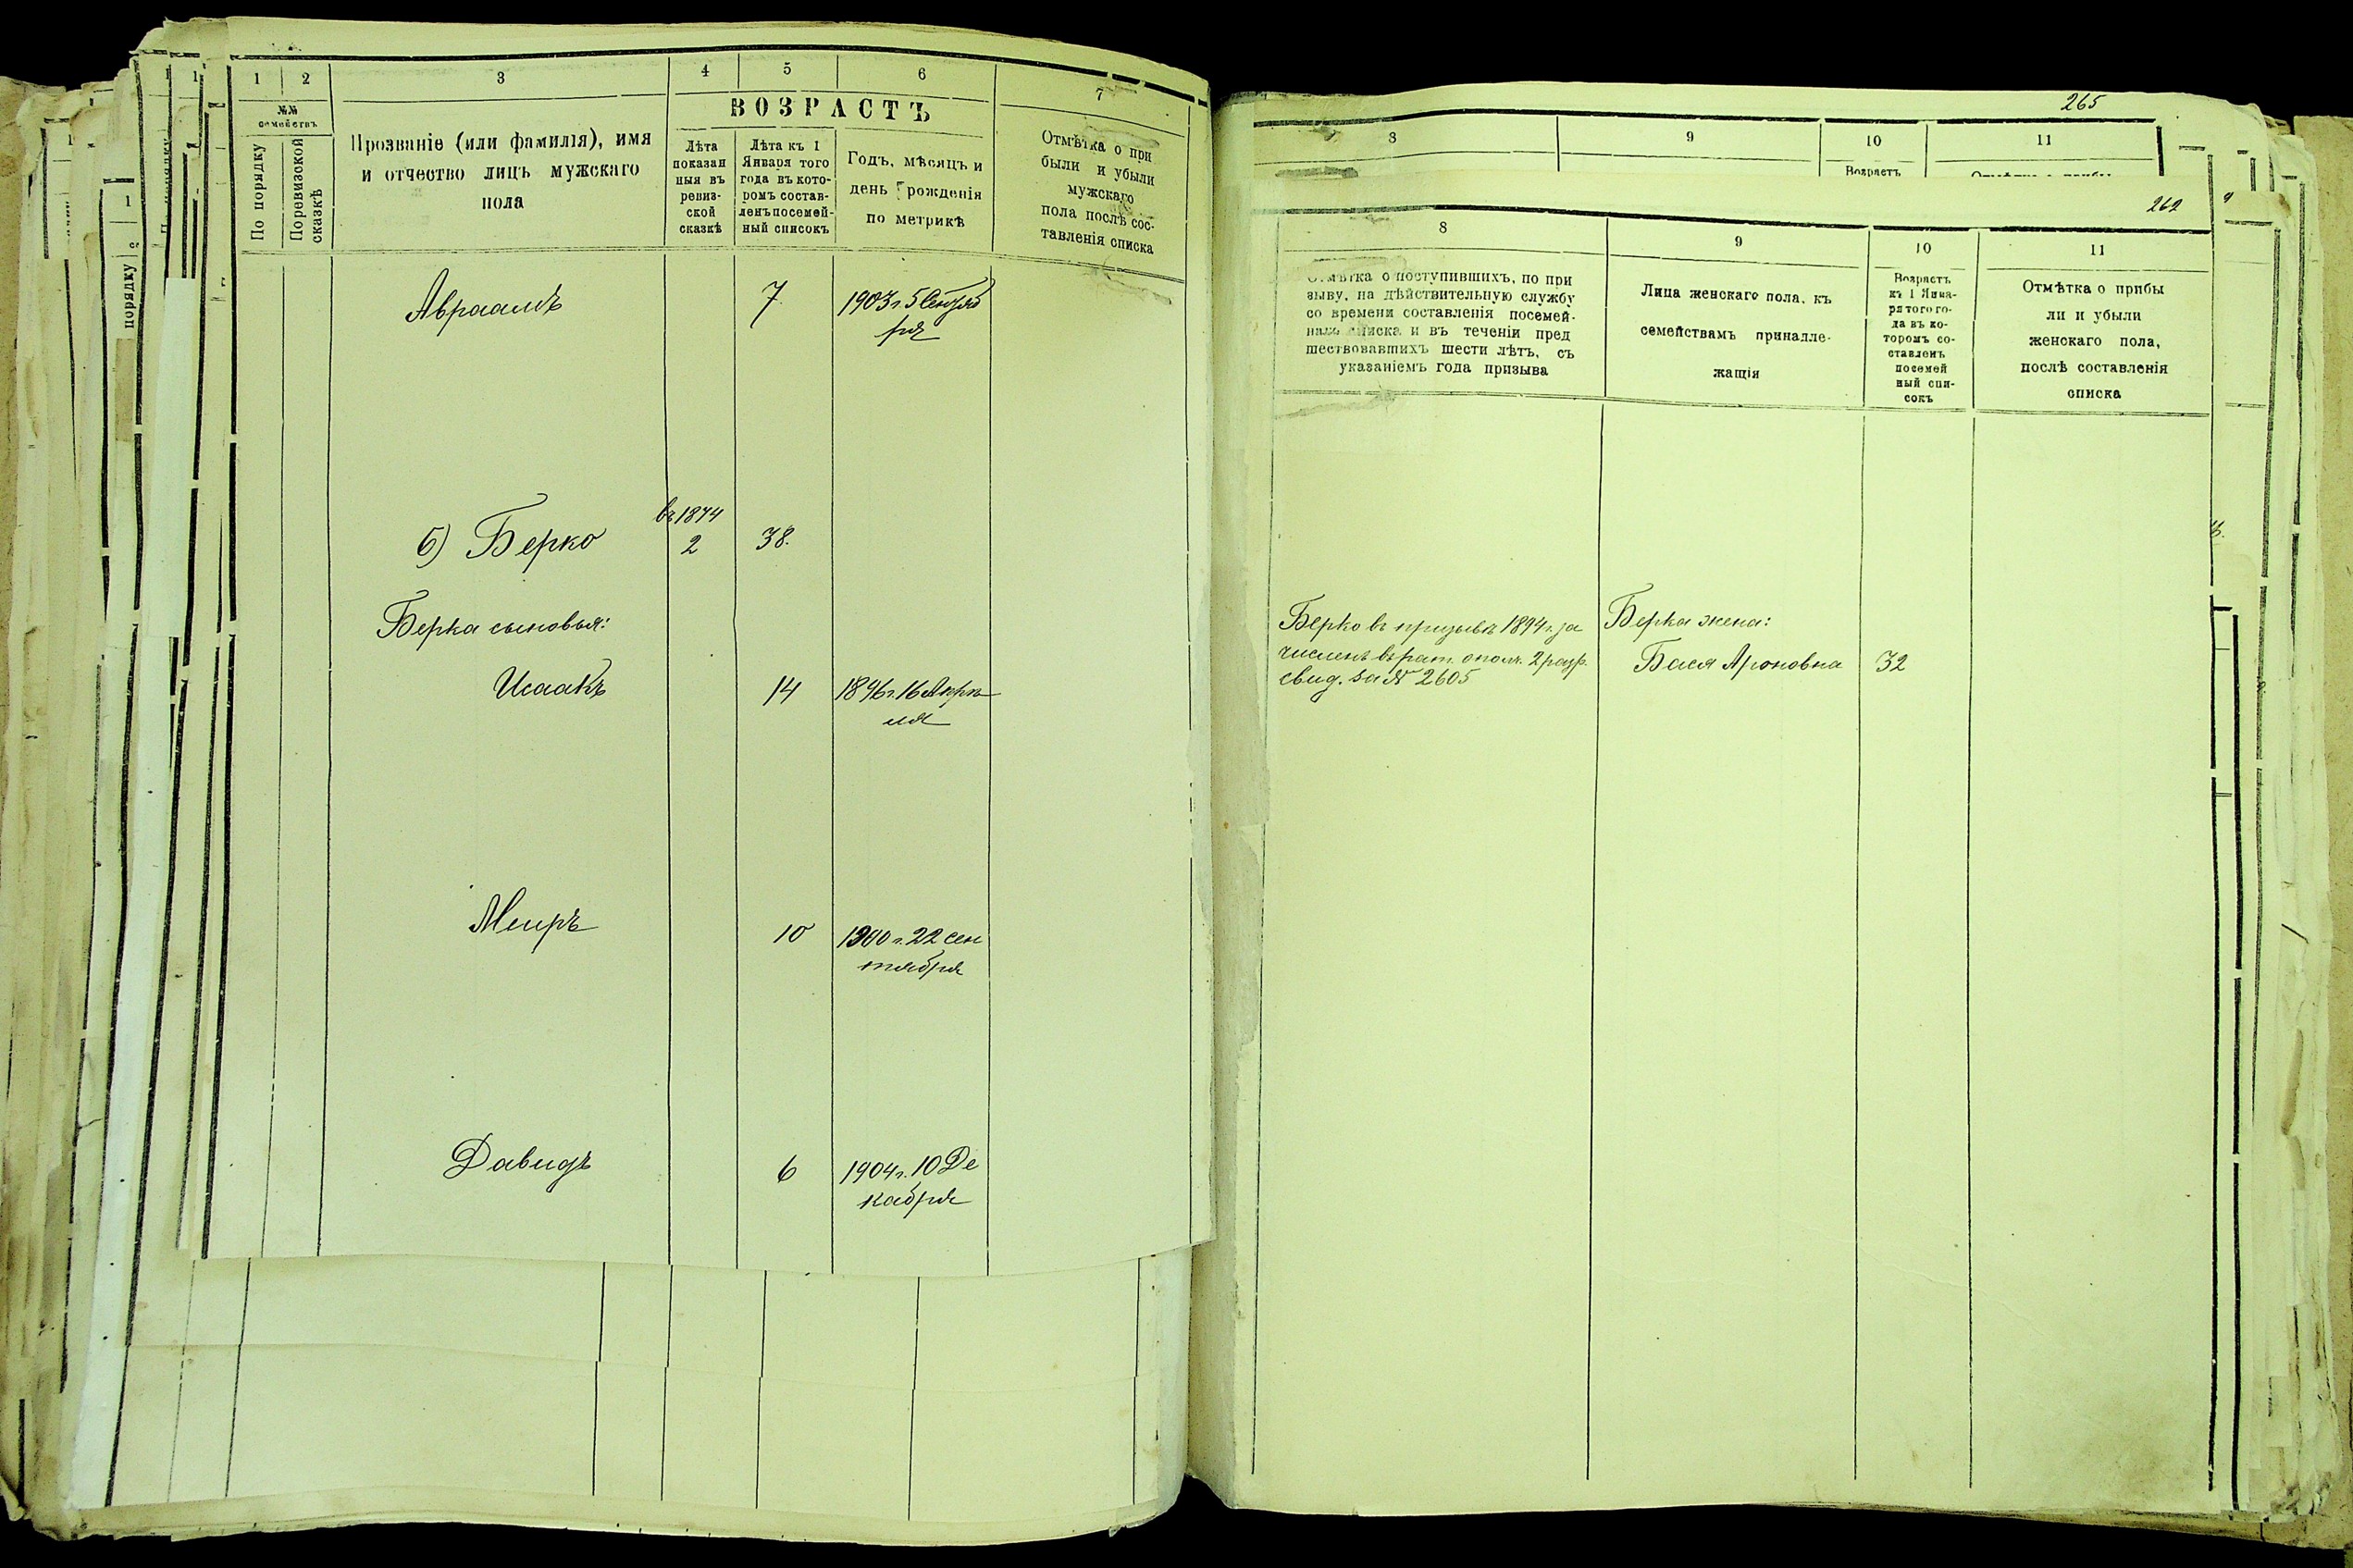 1 2 3 4 5 6 7
№№
семействъ
По порядку
По ревизской
сказкѣ
Прозваніе (или фамилія), имя
и отчество лицъ мужскаго
пола
ВОЗРАСТЪ
Лѣта
показан
ныя въ
ревиз-
ской
сказкѣ
Лѣта къ 1
Января того
года въ кото-
ромъ состав-
ленъ посемей-
ный списокъ
Годъ, мѣсяцъ и
день рожденія
по метрикѣ
Отмѣтка о при
были и убыли
мужскаго
пола послѣ сос-
тавленія списка
Авраамъ 7 1903 г. 5 Сентяб
ря
въ 1874
б) Берко 2 38.
Берка сыновья:
Исаакъ 14 1896 г. 16 Апрѣ
ля
Меиръ 10 1900 г. 22 сен
тября
Давидъ 6 1904 г. 10 Де
кабря
порядку
265
9 10 11
Возрастъ
262
8 9 10 11
Отмѣтка о поступившихъ, по при
зыву, на дѣйствительную службу
со времени составленія посемей-
наго списка и въ теченіи пред
шествовавшихъ шести лѣтъ, съ
указаніемъ года призыва
Лица женскаго пола, къ
семействамъ принадле-
жащія
Возрастъ
къ 1 Янва-
ря того го-
да въ ко-
торомъ со-
ставленъ
посемей
ный спи-
сокъ
Отмѣтка о прибы
ли и убыли
женскаго пола,
послѣ составленія
списка
Берко въ призывъ 1894 г. за
численъ въ рат. ополч. 2 разр.
свид. за № 2605
Берка жена:
Бася Ароновна 32